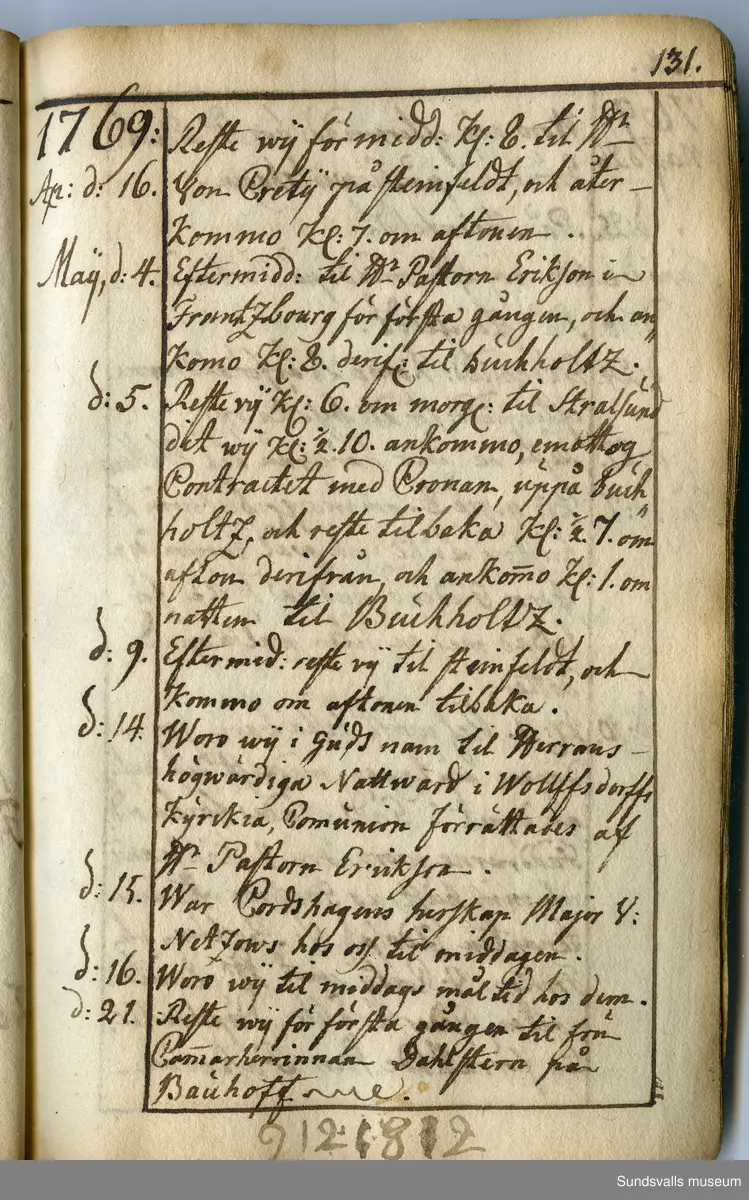 131.
1769: Reste wÿ förmidd: Kl: 8. til Hr
Ap: d: 16. Von Cretÿ på Steinfeldt, och åter-
kommo Kl: 7. om aftonen.
Maÿ, d: 4. Eftermidd: til Hr Pastorn Erikson i
Frantzbourg för första gången, och an
komo Kl: 8. derif: til buchholtz.
d: 5. Reste vÿ Kl: 6. om morg: til Stralsund
det wÿ Kl: ½. 10. ankommo, emottog
Contractet med Cronan, uppå buch
holtz, och reste tilbaka Kl: ½ 7. om
afton derifrån, och ankom̄o Kl: 1. om
natten til Buchholtz.
d: 9. Eftermid: reste vÿ til Steinfeldt, och
kommo om aftonen tilbaka.
d: 14. Woro wÿ i Guds nam til Herrans
högwärdiga Nattward i Wollffsdorffs
Kÿrckia, Comunion förrättades af
Hr Pastorn Erickson.
d: 15. War Cordshagens herskap Major V:
Netzows hos oss til middagen.
d: 16. Woro wÿ til middags måltid hos dem.
d: 21. Reste wÿ för första gången til fru
Cam̄arherrinnan Dahlstern på
Bauhoff.
9121812
Sundsvalls museum